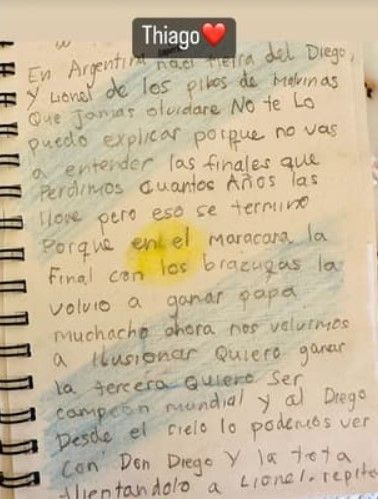 Thiago❤️
En Argentina naci tierra del Diego,
y Lionel de los pibes de Malvinas
Que Jamas olvidare No te Lo
puedo explicar porque no vas
a entender las finales que
Perdimos cuantos Años las
llore pero eso se termino
Porque en el Maracana la
Final con los brazucas la
volvio a ganar papa
Muchacho ahora nos volvimos
a Ilusionar Quiero ganar
la tercera Quiero ser
campeon mundial y al Diego
Desde el cielo lo podemos ver
Con Don Diego Y la tota
Alentandolo a Lionel.